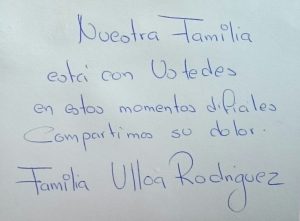 Nuestra Familia
está con Ustedes
en estos momentos dificiles
Compartimos su dolor.
Familia Ulloa Rodriguez